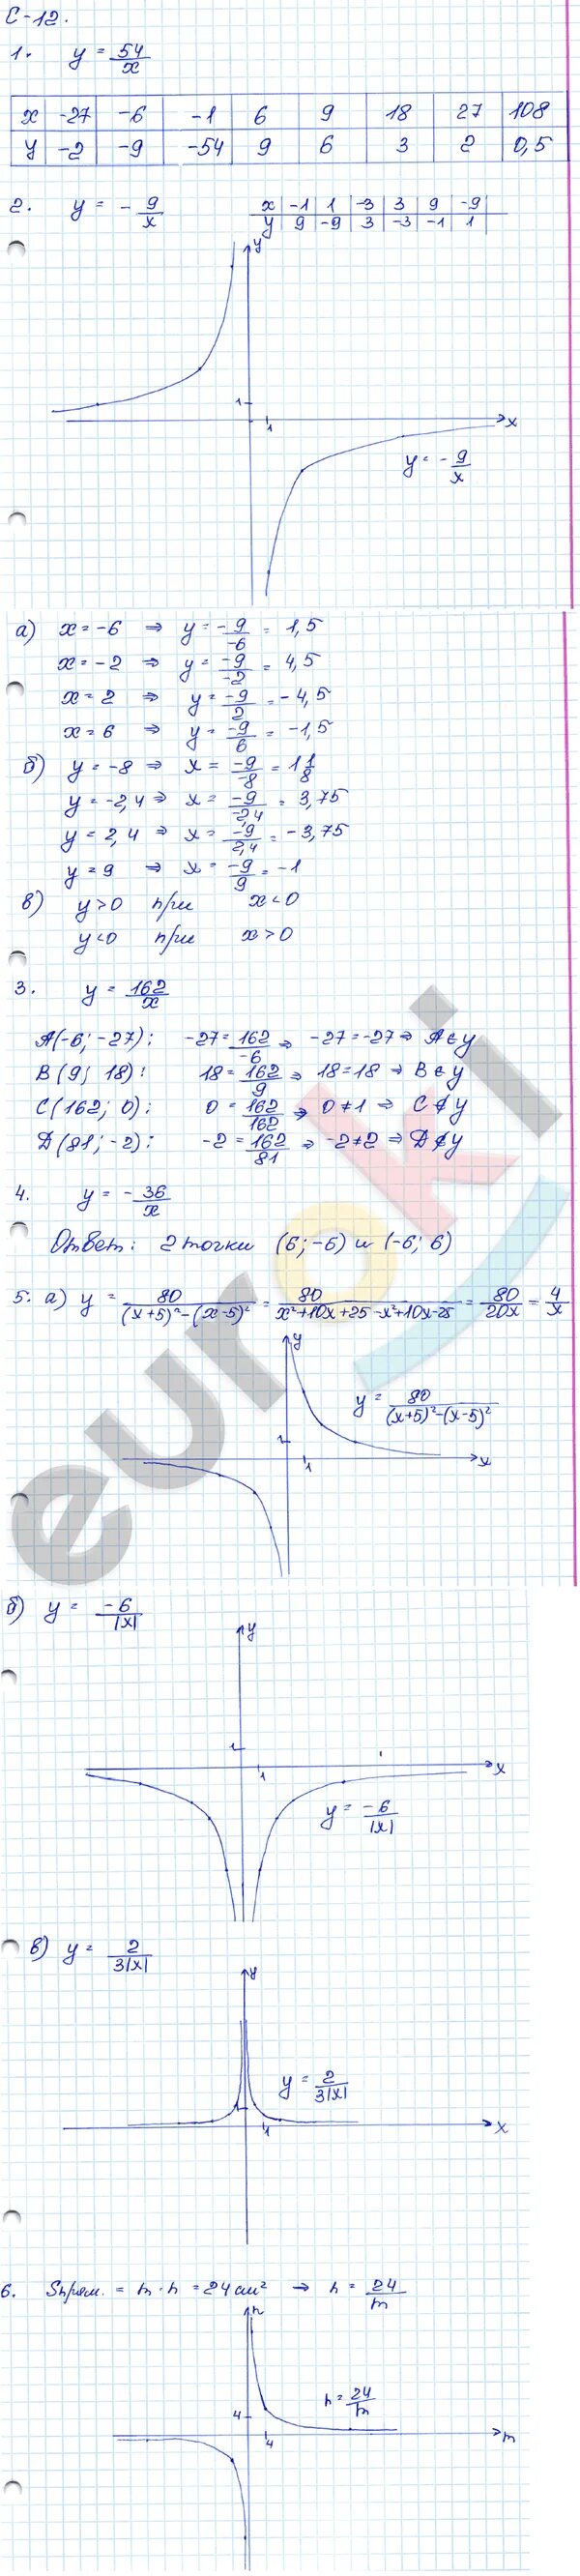 С-12.
1. y = 54/x
x | -27 | -6 | -1 | 6 | 9 | 18 | 27 | 108
y | -2 | -9 | -54 | 9 | 6 | 3 | 2 | 0,5
2. y = - 9/x
x | -1 | 1 | -3 | 3 | 9 | -9
y | 9 | -9 | 3 | -3 | -1 | 1
y
1
1
x
y = - 9/x
а) x = -6 ⇒ y = -9/-6 = 1,5
x = -2 ⇒ y = -9/-2 = 4,5
x = 2 ⇒ y = -9/2 = -4,5
x = 6 ⇒ y = -9/6 = -1,5
б) y = -8 ⇒ x = -9/-8 = 1 1/8
y = -2,4 ⇒ x = -9/-2,4 = 3,75
y = 2,4 ⇒ x = -9/2,4 = -3,75
y = 9 ⇒ x = -9/9 = -1
в) y > 0 при x < 0
y < 0 при x > 0
3. y = 162/x
A(-6; -27): -27 = 162/-6 ⇒ -27 = -27 ⇒ A ∈ y
B(9; 18): 18 = 162/9 ⇒ 18 = 18 ⇒ B ∈ y
C(162; 0): 0 = 162/162 ⇒ 0 ≠ 1 ⇒ C ∉ y
D(81; -2): -2 = 162/81 ⇒ -2 ≠ 2 ⇒ D ∉ y
4. y = - 36/x
Ответ: 2 точки (6; -6) и (-6; 6)
5. а) y = 80/((x+5)²-(x-5)²) = 80/(x²+10x+25-x²+10x-25) = 80/20x = 4/x
y
1
1
x
y = 80/((x+5)²-(x-5)²)
б) y = -6/|x|
y
1
1
x
y = -6/|x|
в) y = 2/3|x|
y
y = 2/3|x|
1
1
x
6. Sпрям. = m · n = 24 см² ⇒ n = 24/m
n
n = 24/m
4
4
m
euroki